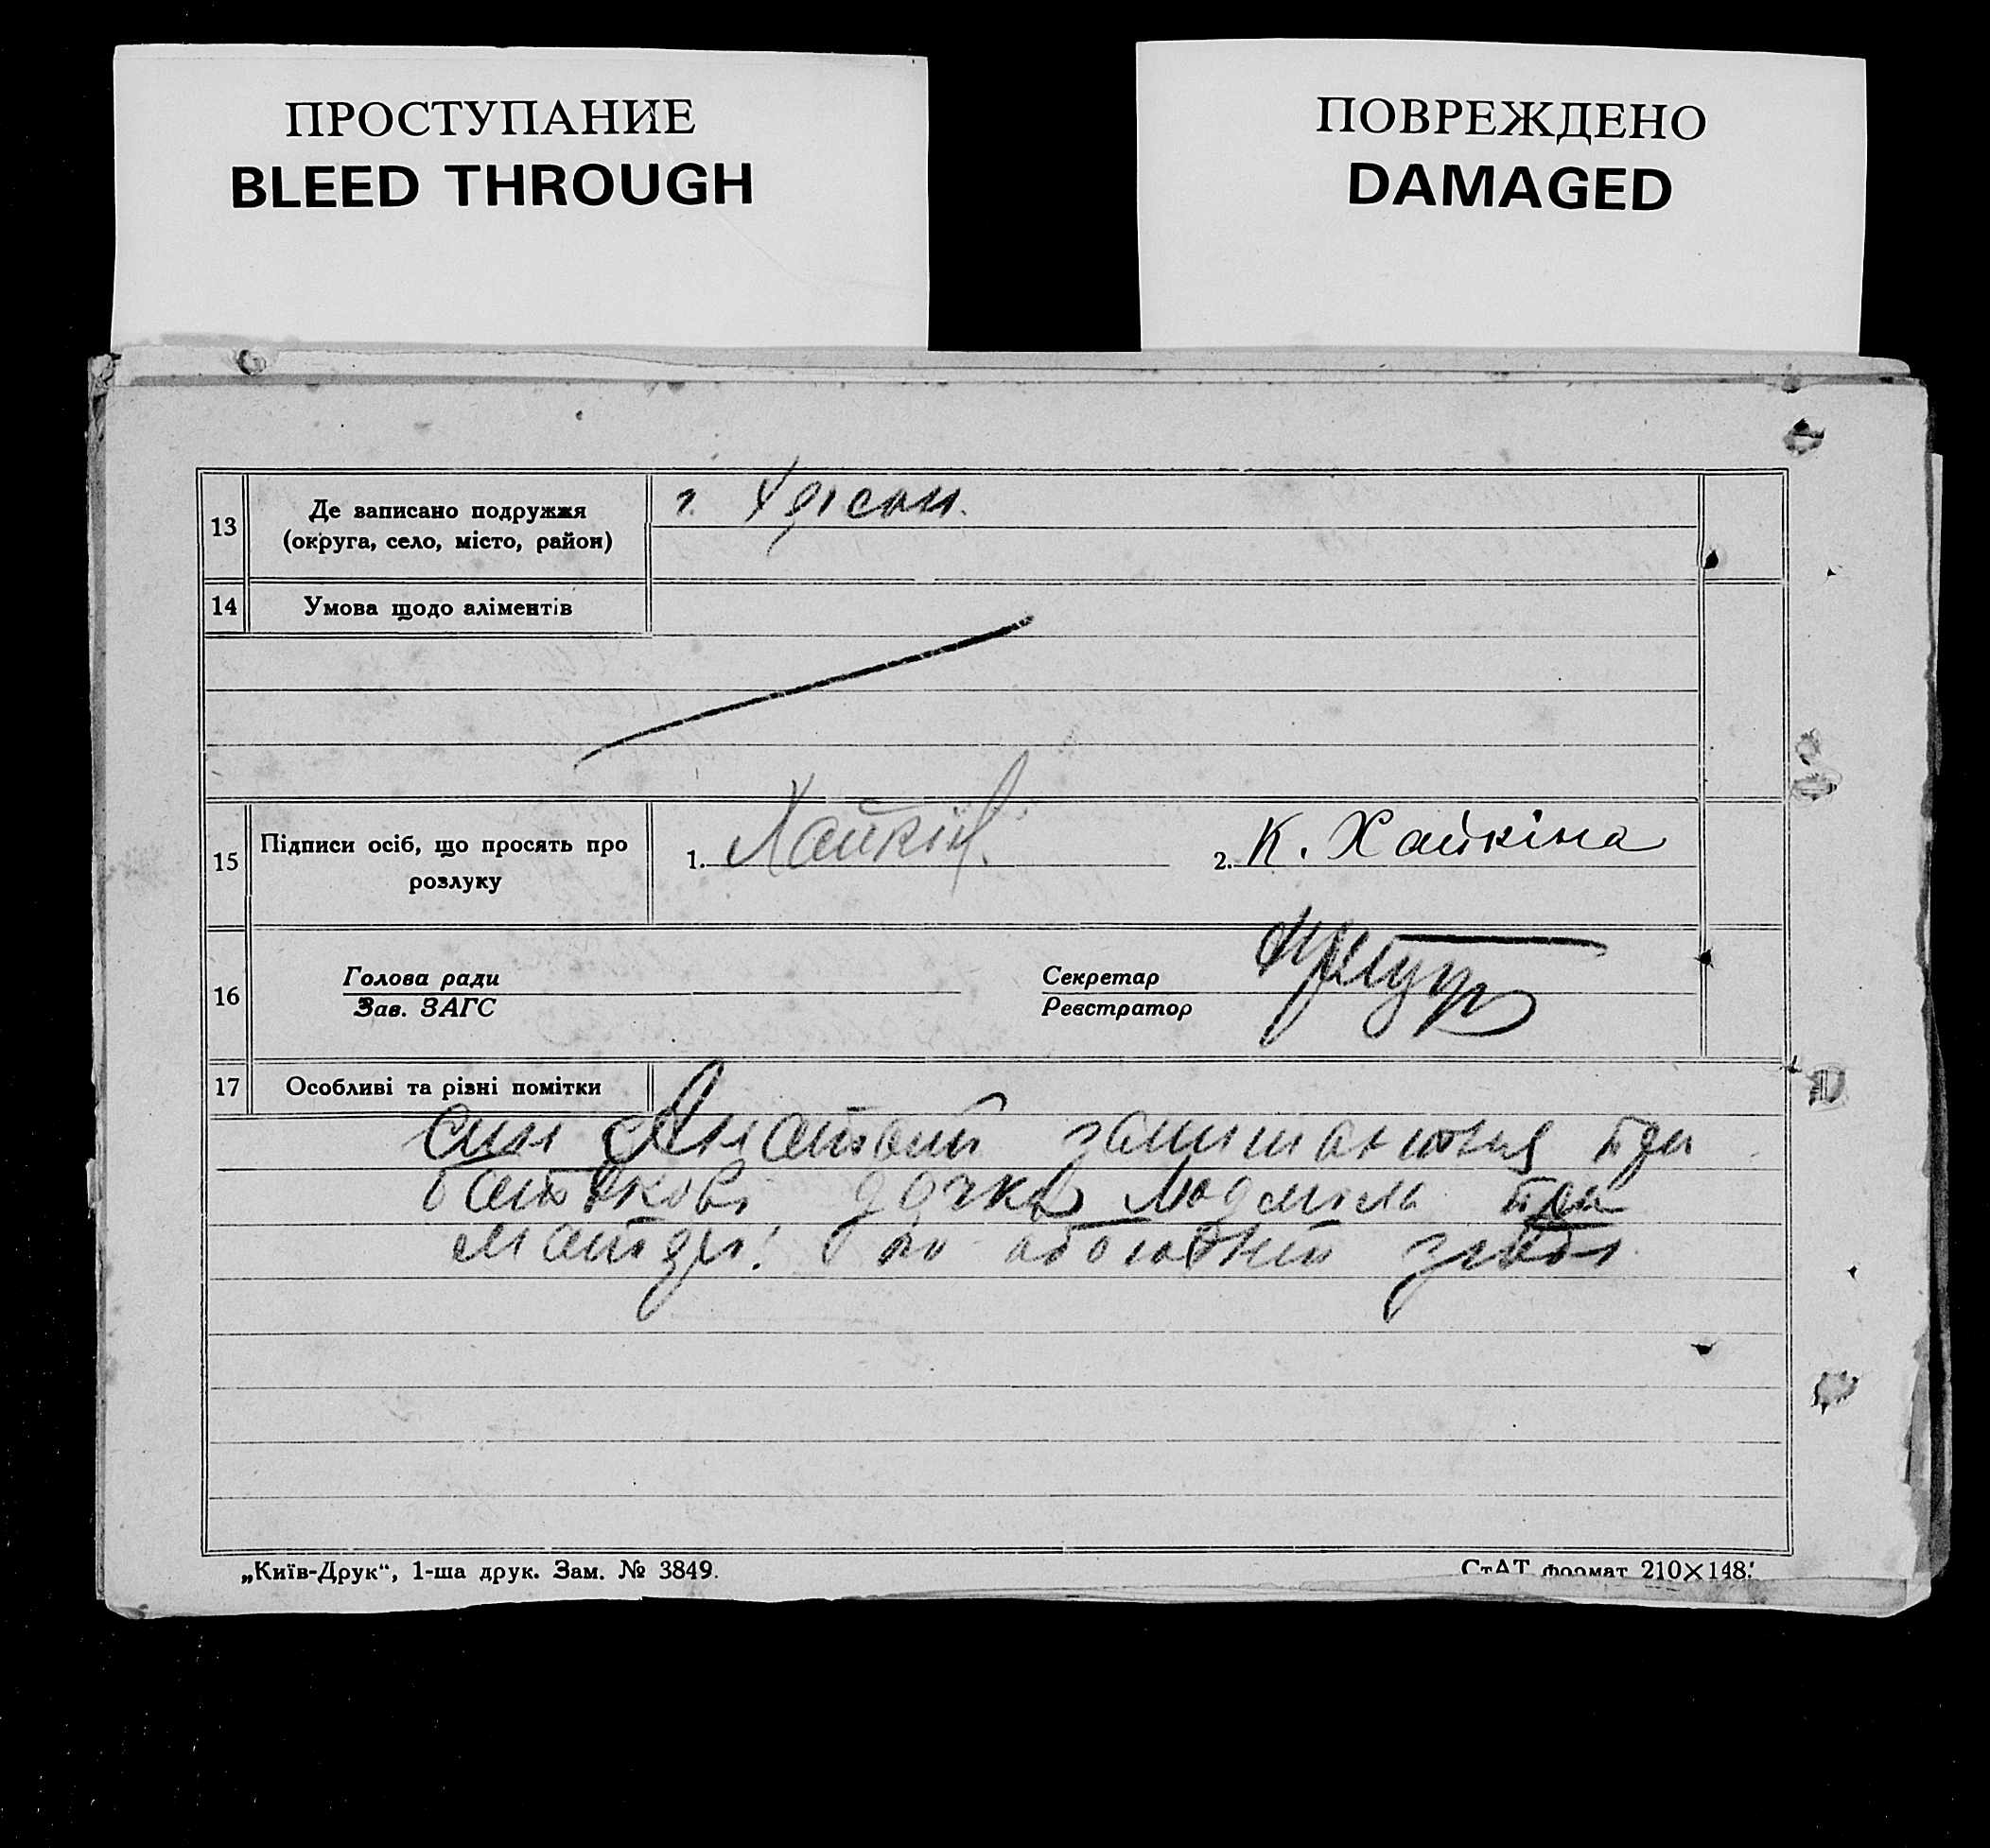 ПРОСТУПАНИЕ
BLEED THROUGH
ПОВРЕЖДЕНО
DAMAGED
13
Де записано подружжя
(округа, село, місто, район)
г. Херсон.
14
Умова щодо аліментів
15
Підписи осіб, що просять про
розлуку
1. Хайкін
2. К. Хайкіна
16
Голова ради
Зав. ЗАГС
Секретар
Реєстратор
17
Особливі та різні помітки
син Анатолий при
батькові дочка Людмила при
матері.
„Київ-Друк“, 1-ша друк. Зам. № 3849.
СтАТ формат 210×148.